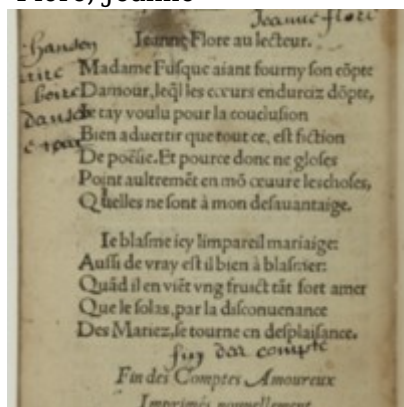 Flore, Jeanne
Jeanne flore
Ieanne Flore au lecteur.
Madame Fusque aiant fourny son cõpte
Damour, leq̃l les cœurs endurciz dõpte,
Ie tay voulu pour la conclusion
Bien aduertir que tout ce, est fiction
De poësie. Et pource donc ne gloses
Point aultremẽt en mõ œuure les choses,
Quelles ne sont à mon desauantaige.
Ie blasme icy limpareil mariaige:
Aussi de vray est il bien à blasmer:
Quãd il en viẽt vng fruict tãt fort amer
Que le solas, par la disconuenance
Des Mariez, se tourne en desplaisance.
Fin des Comptes Amoureux
Imprimés nouuellement